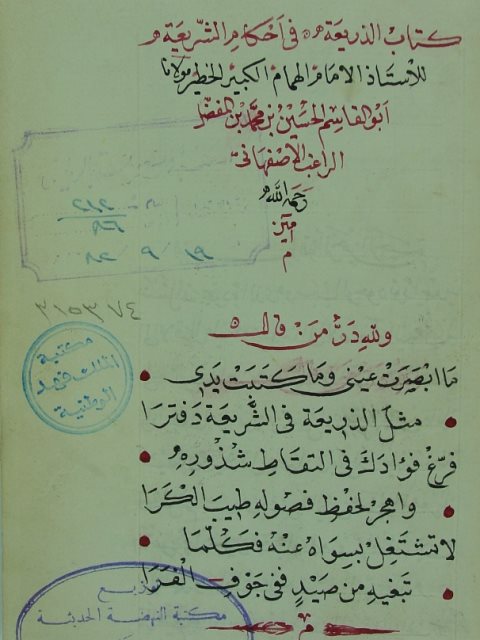 كتاب الذريعة في احكام الشريعة
للاستاذ الامام الهمام الكبير الخطير مولانا
ابو القاسم الحسين بن محمد بن الفضل
الراغب الاصفهاني
رحمه الله
امين
م
٢١٢
٨٦
١٩ ٩ ٨٢
٣١٥٣٧٤
ولله در من قال
ما ابصرت عيني وما كتبت يدي
مثل الذريعة في الشريعة دفترا
فرغ فؤادك في التقاط شذوره
واهجر لحفظ فصوله طيب الكرا
لا تشتغل بسواه عنه فكلما
تبغيه من صيد ففي جوف الفرا
م
مكتبة
الملك فهد
الوطنية
مكتبة النهضة الحديثة